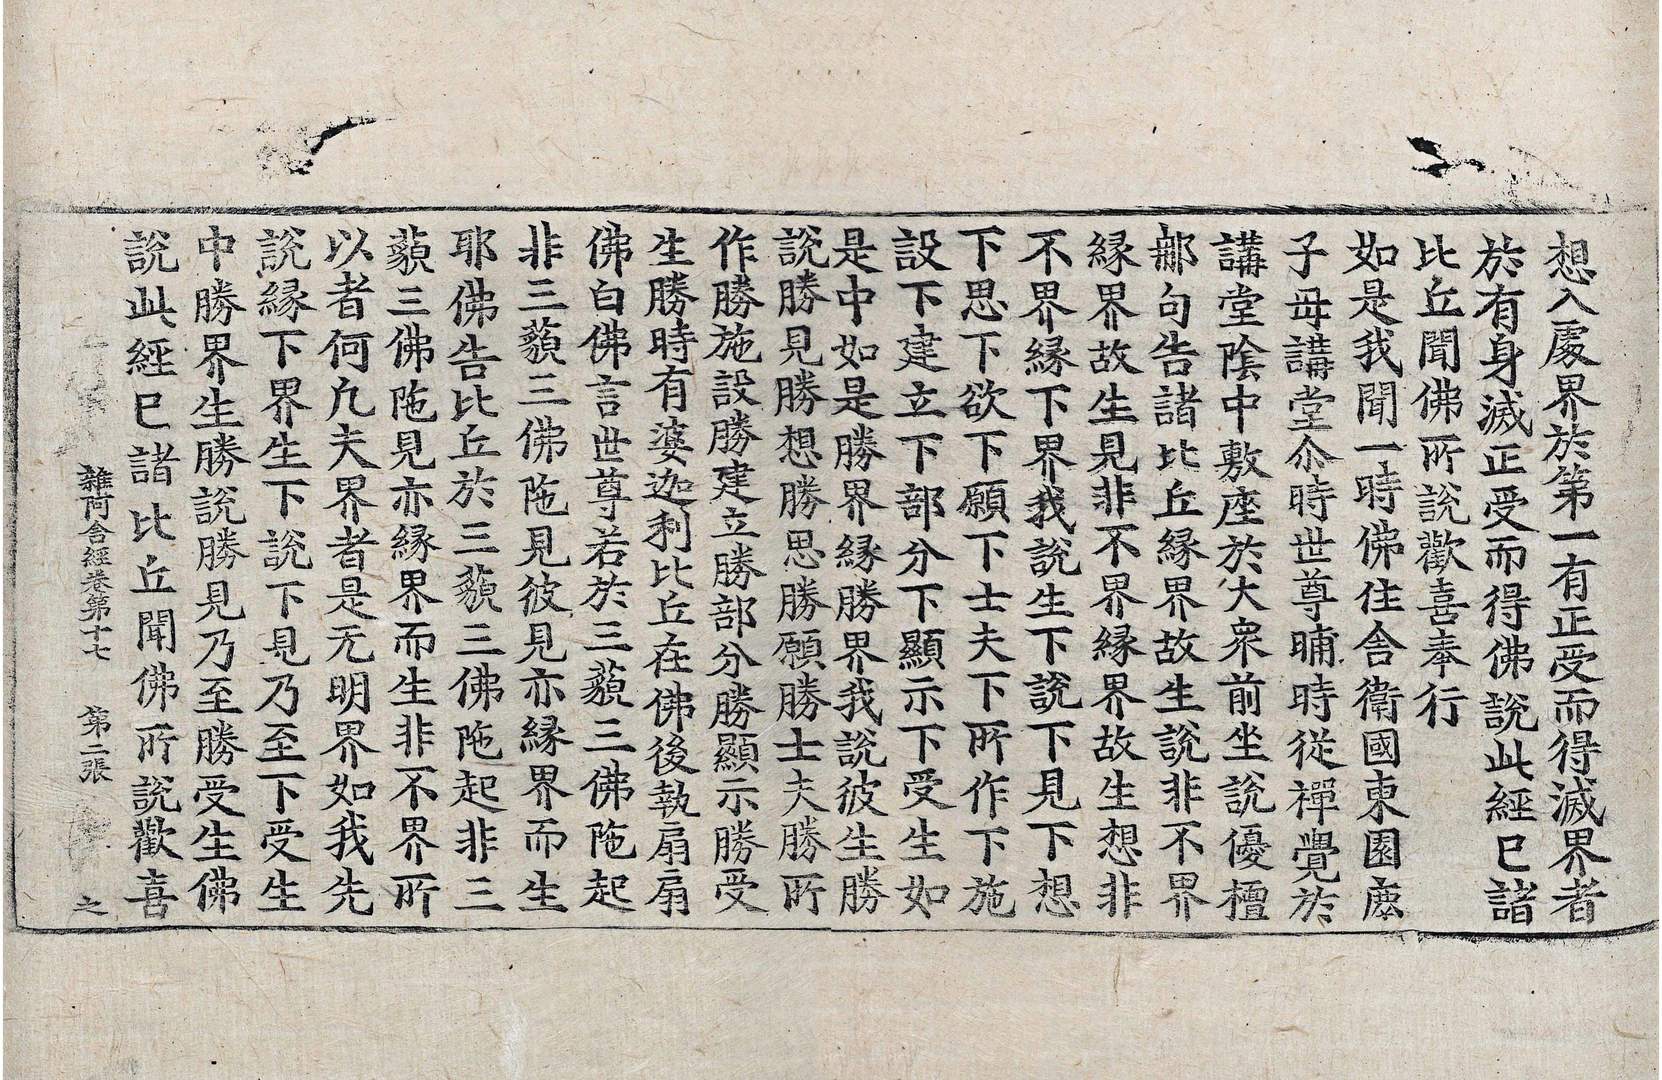 想入處界於第一有正受而得滅界者
於有身滅正受而得佛說此經已諸
比丘聞佛所說歡喜奉行
如是我聞一時佛住舍衛國東園鹿
子母講堂尒時世尊晡時從禪覺於
講堂陰中敷座於大衆前坐說優檀
郍句告諸比丘緣界故生說非不界
緣界故生見非不界緣界故生想非
不界緣下界我說生下說下見下想
下思下欲下願下士夫下所作下施
設下建立下部分下顯示下受生如
是中如是勝界緣勝界我說彼生勝
說勝見勝想勝思勝願勝士夫勝所
作勝施設勝建立勝部分勝顯示勝受
生勝時有婆迦利比丘在佛後執扇扇
佛白佛言世尊若於三藐三佛陁起
非三藐三佛陁見彼見亦緣界而生
耶佛告比丘於三藐三佛陁起非三
藐三佛陁見亦緣界而生非不界所
以者何凢夫界者是无明界如我先
說緣下界生下說下見乃至下受生
中勝界生勝說勝見乃至勝受生佛
說此經已諸比丘聞佛所說歡喜
雜阿含經卷第十七 第二張 之